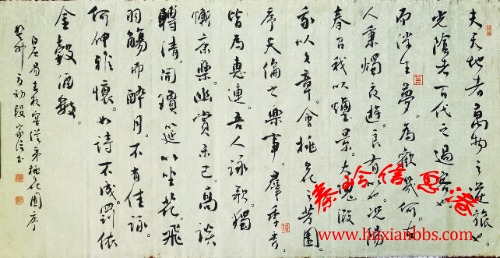 夫天地者萬物之逆旅也
光陰者百代之過客
而浮生若夢為歡幾何古
人秉燭夜遊良有以也況陽
春召我以煙景大塊假
我以文章會桃花之芳園
序天倫之樂事羣季
皆為惠連吾人詠歌獨
慚康樂幽賞未已高談
轉清開瓊筵以坐花飛
羽觴而醉月不有佳詠
何伸雅懷如詩不成罰依
金穀酒數
白居易春夜宴從弟桃花園序
秦玲信息港
www.huxianbbs.com